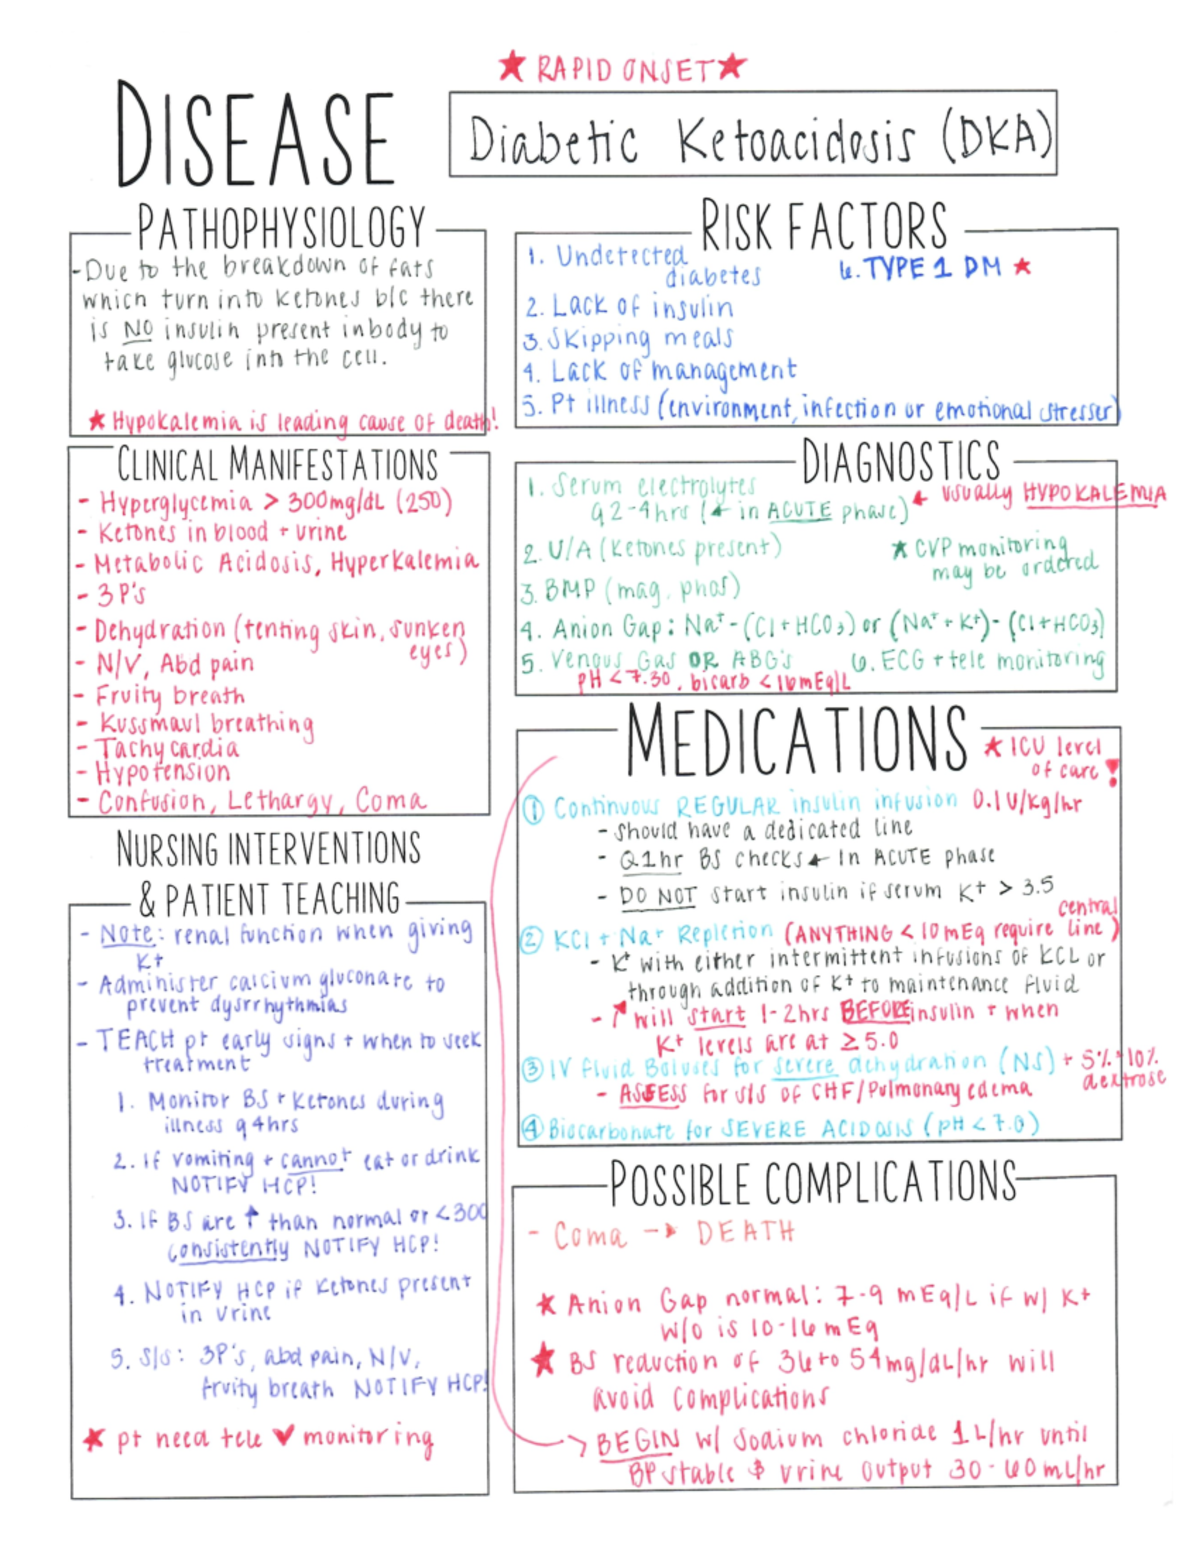 ★ RAPID ONSET ★
DISEASE
Diabetic Ketoacidosis (DKA)
PATHOPHYSIOLOGY
- Due to the breakdown of fats
which turn into ketones b/c there
is NO insulin present in body to
take glucose into the cell.
★ Hypokalemia is leading cause of death!
RISK FACTORS
1. Undetected
diabetes
6. TYPE 1 DM ★
2. Lack of insulin
3. Skipping meals
4. Lack of management
5. Pt illness (environment, infection or emotional stresser)
CLINICAL MANIFESTATIONS
- Hyperglycemia > 300mg/dL (250)
- Ketones in blood + urine
- Metabolic Acidosis, Hyperkalemia
- 3 P's
- Dehydration (tenting skin, sunken
eyes)
- N/V, Abd pain
- Fruity breath
- Kussmaul breathing
- Tachycardia
- Hypotension
- Confusion, Lethargy, Coma
DIAGNOSTICS
1. Serum electrolytes
q 2-4hrs (← in ACUTE phase)
← usually HYPOKALEMIA
2. U/A (Ketones present)
★ CVP monitoring
may be ordered
3. BMP (mag, phos)
4. Anion Gap: Na+ - (Cl + HCO3) or (Na+ + K+) - (Cl + HCO3)
5. Venous Gas OR ABG's
6. ECG + tele monitoring
pH < 7.30, bicarb < 16mEq/L
MEDICATIONS
★ ICU level
of care!
① Continuous REGULAR insulin infusion 0.1 U/kg/hr
- Should have a dedicated line
- Q1hr BS checks ← In ACUTE phase
- DO NOT start insulin if serum K+ > 3.5
② KCl + Na+ Repletion (ANYTHING < 10mEq require central line)
- K+ with either intermittent infusions of KCL or
through addition of K+ to maintenance fluid
- ↑ will start 1-2hrs BEFORE insulin + when
K+ levels are at ≥ 5.0
③ IV fluid Boluses for severe dehydration (NS) + 5%-10%
dextrose
- ASSESS for s/s of CHF/Pulmonary edema
④ Biocarbonate for SEVERE ACIDOSIS (pH < 7.0)
NURSING INTERVENTIONS
& PATIENT TEACHING
- Note: renal function when giving
K+
- Administer calcium gluconate to
prevent dysrrhythmias
- TEACH pt early signs + when to seek
treatment
1. Monitor BS + Ketones during
illness q 4hrs
2. If vomiting + cannot eat or drink
NOTIFY HCP!
3. If BS are ↑ than normal or <300
consistently NOTIFY HCP!
4. NOTIFY HCP if ketones present
in urine
5. S/s: 3P's, abd pain, N/V,
fruity breath NOTIFY HCP!
★ pt need tele ♥ monitoring
POSSIBLE COMPLICATIONS
- Coma → DEATH
★ Anion Gap normal: 7-9 mEq/L if w/ K+
w/o is 10-16 mEq
★ BS reduction of 36 to 54mg/dL/hr will
avoid complications
→ BEGIN w/ Sodium chloride 1L/hr until
BP stable $ urine output 30-60mL/hr